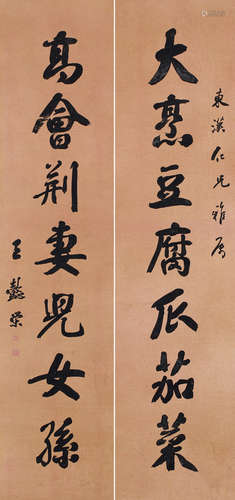 東漢仁兄雅屬
大烹豆腐瓜茄菜
高會荊妻兒女孫
王懿榮